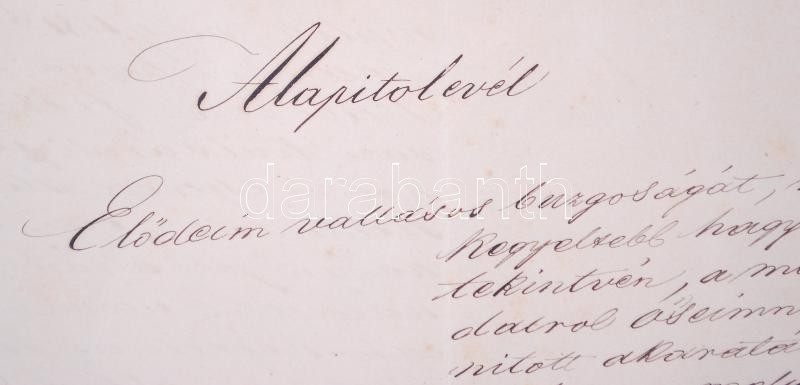 Alapitolevél
Elődeim vallásos buzgoságát,
kegyeltebb hagy
tekintvén, a m
datrol őseimn
nitott akaratá
darabanth